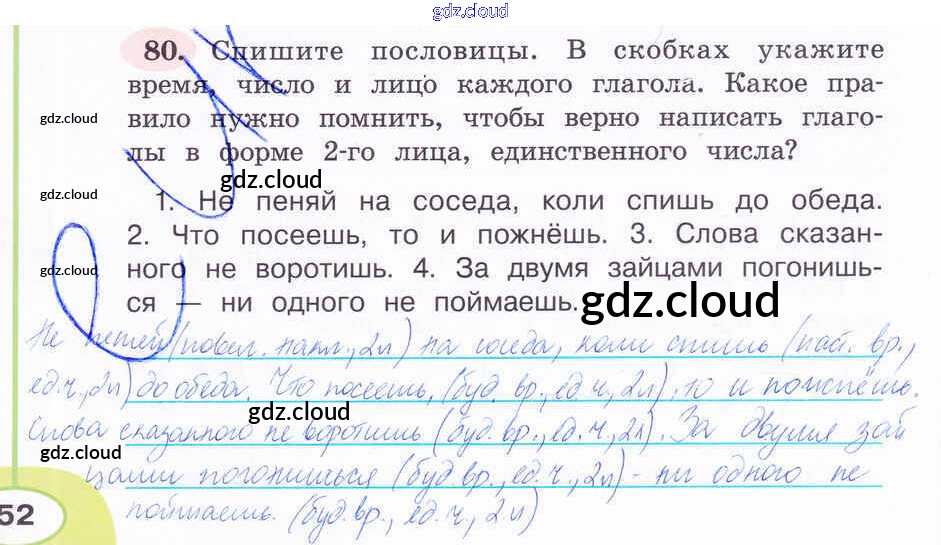 gdz.cloud
80. Спишите пословицы. В скобках укажите
время, число и лицо каждого глагола. Какое пра-
gdz.cloud
вило нужно помнить, чтобы верно написать глаго-
лы в форме 2-го лица, единственного числа?
gdz.cloud
gdz.cloud
1. Не пеняй на соседа, коли спишь до обеда.
2. Что посеешь, то и пожнёшь. 3. Слова сказан-
gdz.cloud
ного не воротишь. 4. За двумя зайцами погонишь-
ся — ни одного не поймаешь.
gdz.cloud
Не пеняй (повел. накл., 2л) на соседа, коли спишь (наст. вр.,
ед.ч., 2л) до обеда. Что посеешь, (буд. вр., ед.ч., 2л), то и пожнёшь.
gdz.cloud
Слова сказанного не воротишь (буд. вр., ед.ч., 2л). За двумя зай
gdz.cloud
цами погонишься (буд. вр., ед.ч., 2л) - ни одного не
gdz.cloud
52
поймаешь. (буд. вр., ед.ч., 2л)